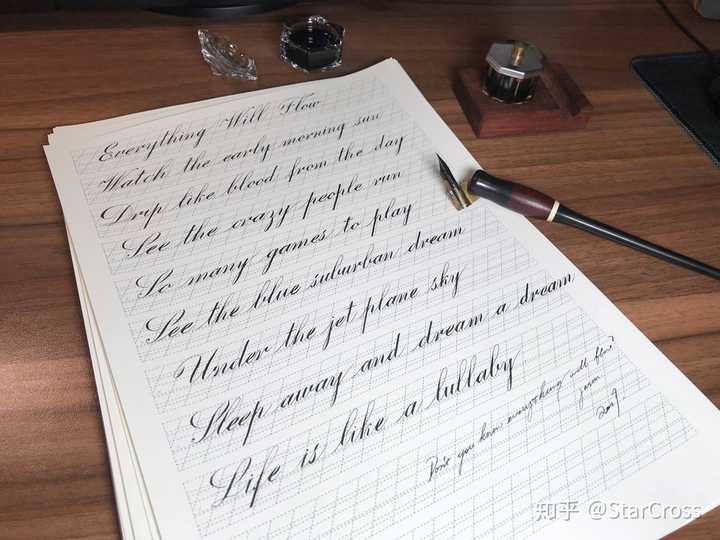 Everything Will Flow
Watch the early morning sun
Drip like blood from the day
See the crazy people run
So many games to play
See the blue suburban dream
Under the jet plane sky
Sleep away and dream a dream
Life is like a lullaby
Don't you know everything will flow?
2019
知乎 @StarCross